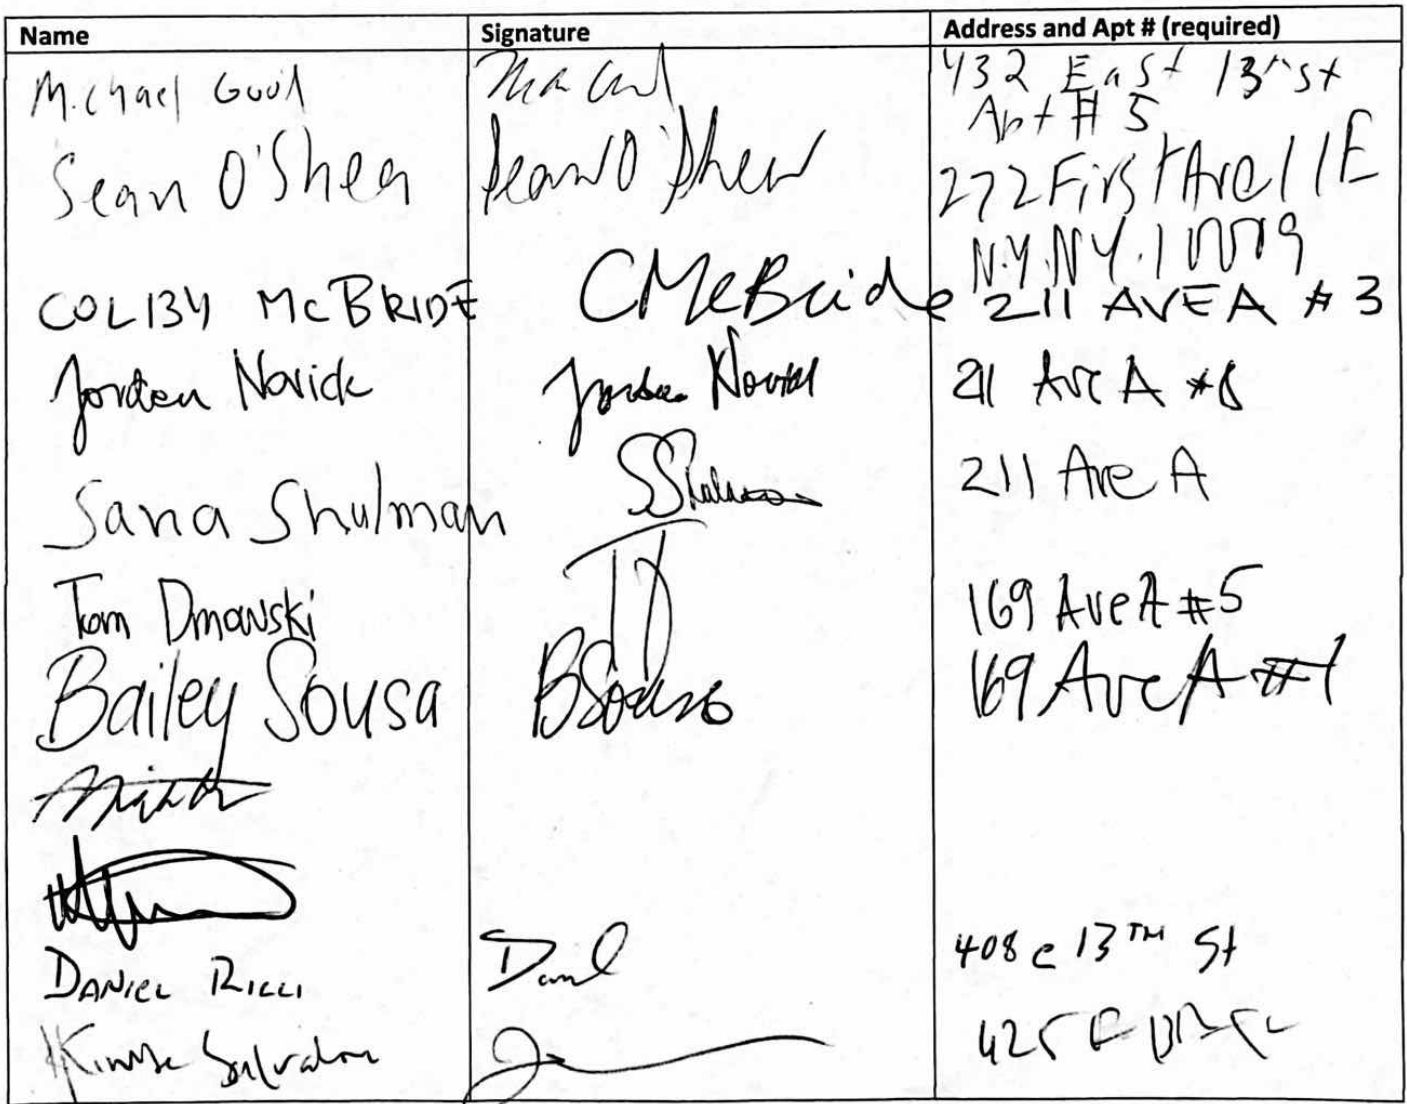 Name Signature Address and Apt # (required)
Michael 432 East 13th st
Apt # 5
Sean O'Shea Sean O'Shea 272 First Ave 11E
N.Y. N.Y. 10009
COLBY McBRIDE CMcBride 211 AVE A # 3
Jordan Novick Jordan Novick 211 Ave A #
Sana Shulman SShulman 211 Ave A
Tom TD 169 Ave A #5
Bailey Sousa BSousa 169 Ave A #1
DANIEL RICCI Danl 408 e 13TH St
425 E